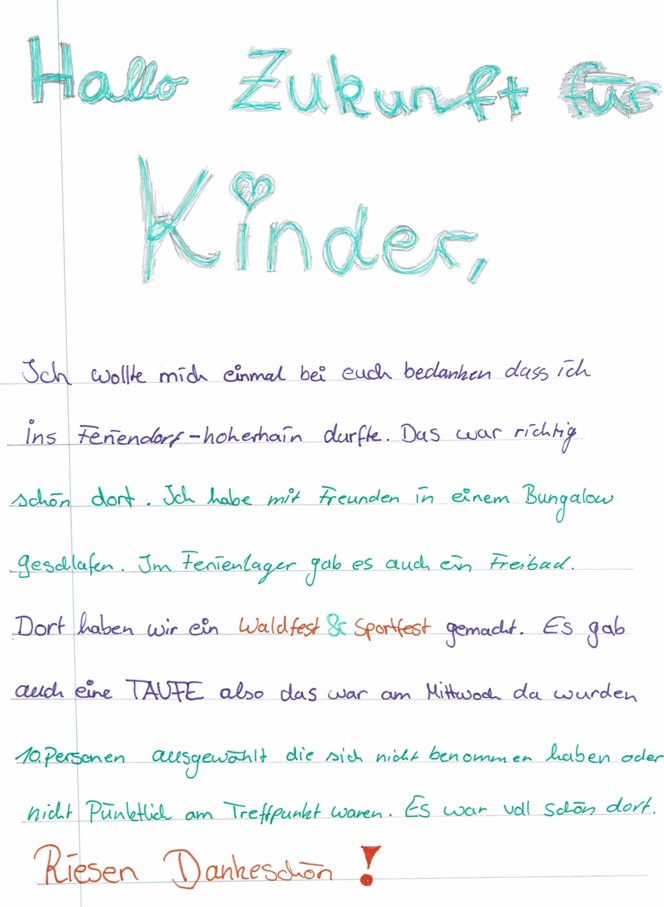 Hallo Zukunft für
Kinder,
Ich wollte mich einmal bei euch bedanken dass ich
ins Feriendorf-hoherhain durfte. Das war richtig
schön dort. Ich habe mit Freunden in einem Bungalow
geschlafen. Im Ferienlager gab es auch ein Freibad.
Dort haben wir ein Waldfest & Sportfest gemacht. Es gab
auch eine TAUFE also das war am Mittwoch da wurden
10.Personen ausgewählt die sich nicht benommen haben oder
nicht Pünktlich am Treffpunkt waren. Es war voll schön dort.
Riesen Dankeschön !